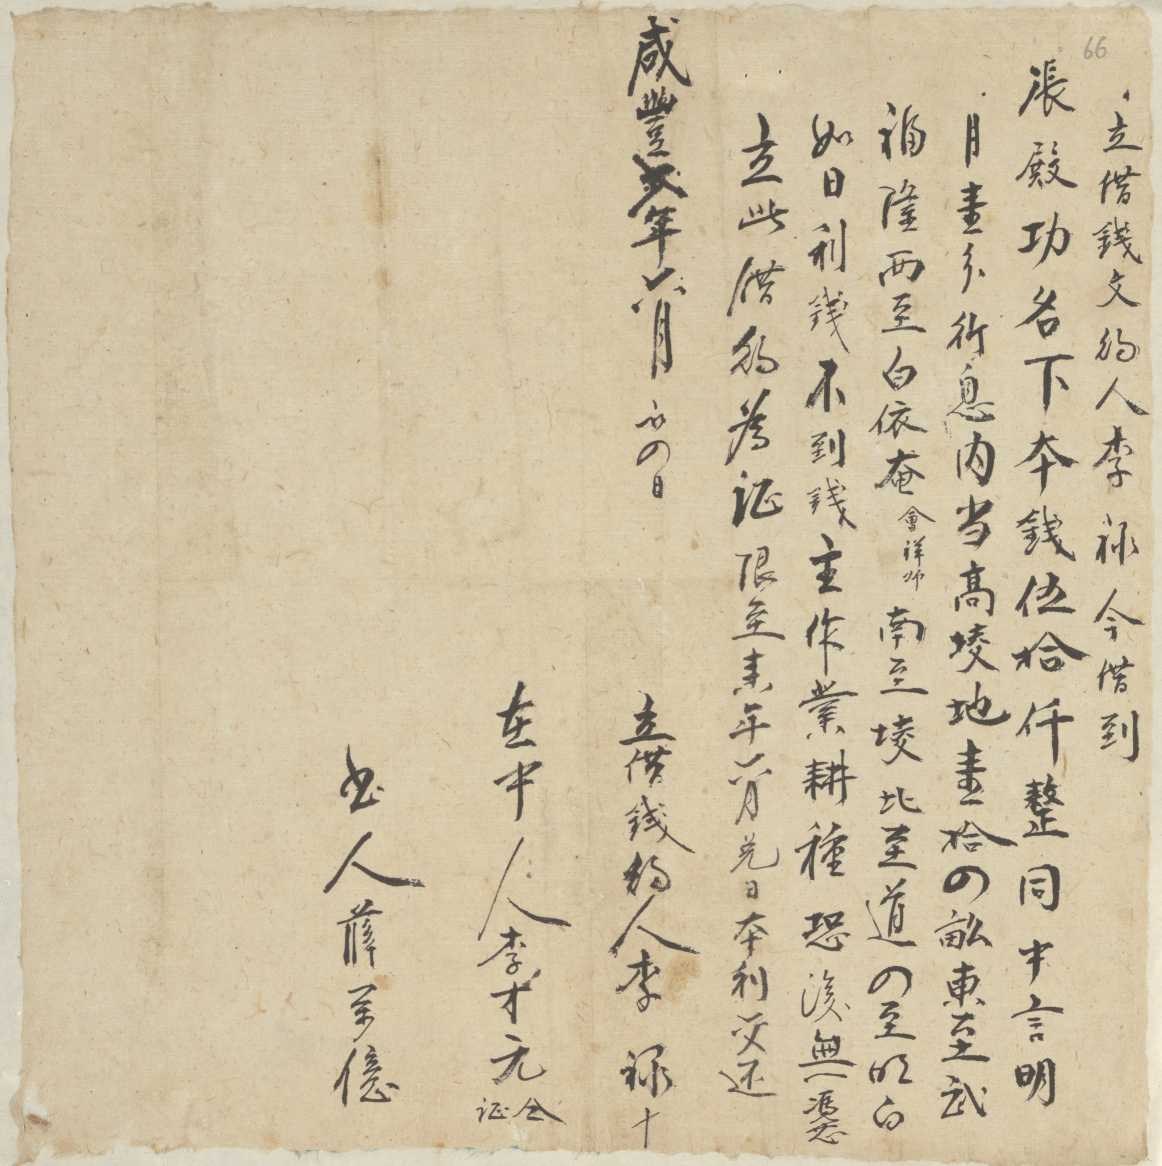 66
立借錢文約人李祿今借到
張殿功名下本錢伍拾仟整同中言明
月壹分行息內当高埈地壹拾四畝東至武
福隆西至白依庵會詳师南至埈北至道四至明白
如日利錢不到錢主作業耕種恐後無憑
立此借約為証限至来年六月
日本利交还
咸豐
年六月
四日
立借錢約人李祿十
在中人李才元仝証
書人薛万億